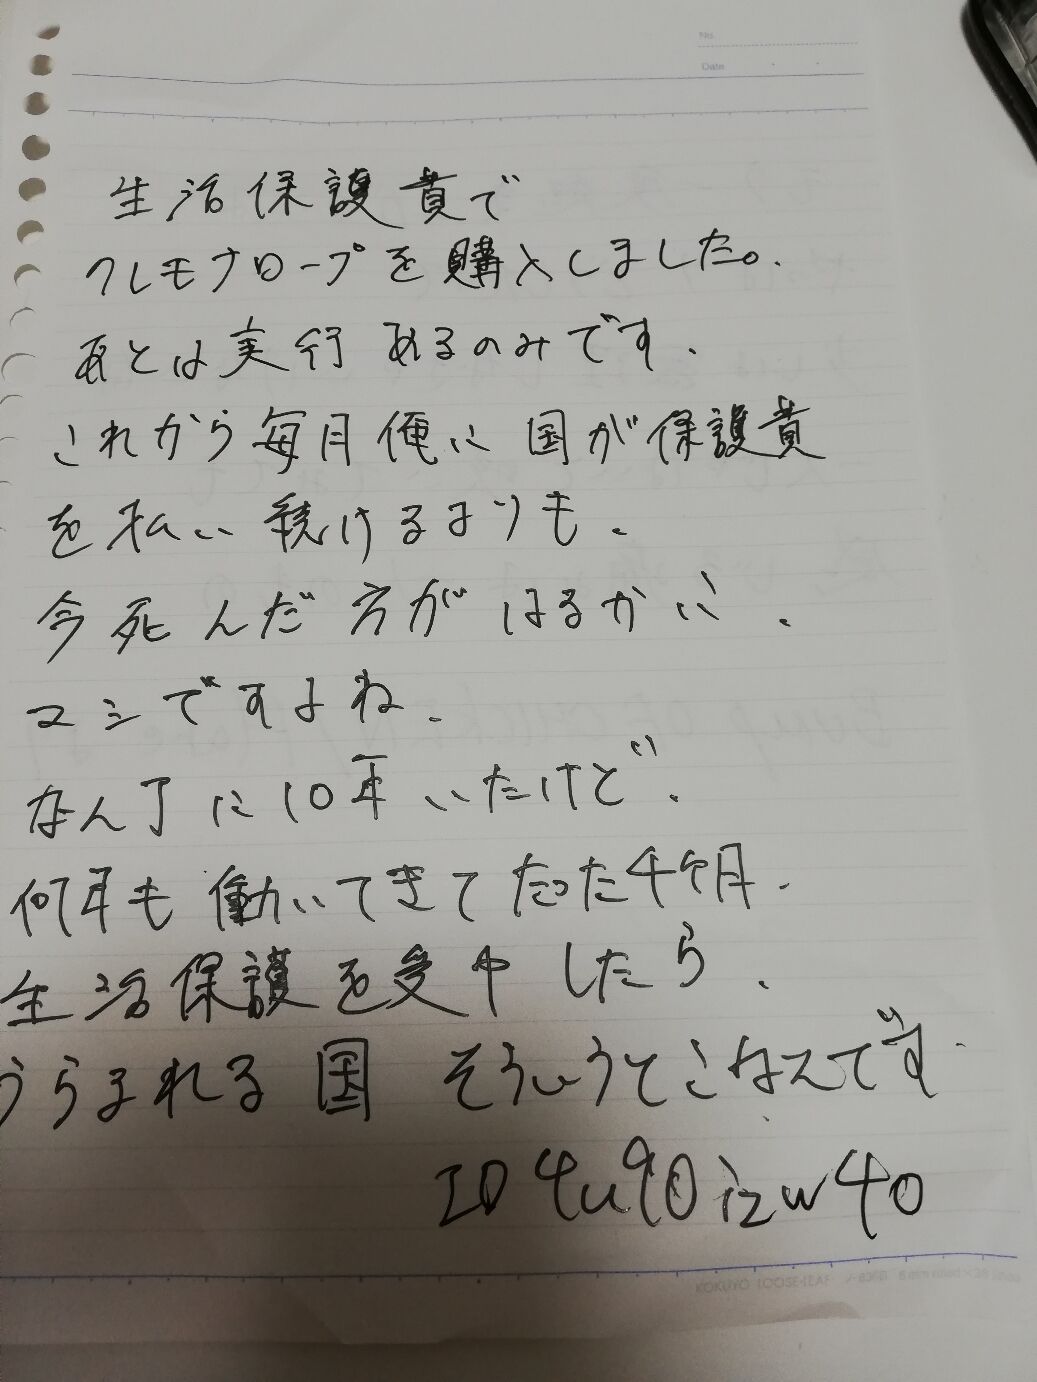 No.
Date
生活保護費で
クレモナロープを購入しました。
あとは実行あるのみです.
これから毎月俺に国が保護費
を払い続けるよりも.
今死んだ方がはるかに.
マシですよね.
なん丁に10年いたけど.
何年も働いてきてたった4ケ月.
生活保護を受中したら.
うらまれる国 そういうとこなんです.
ID 4u90izw40
KOKUYO LOOSE-LEAF